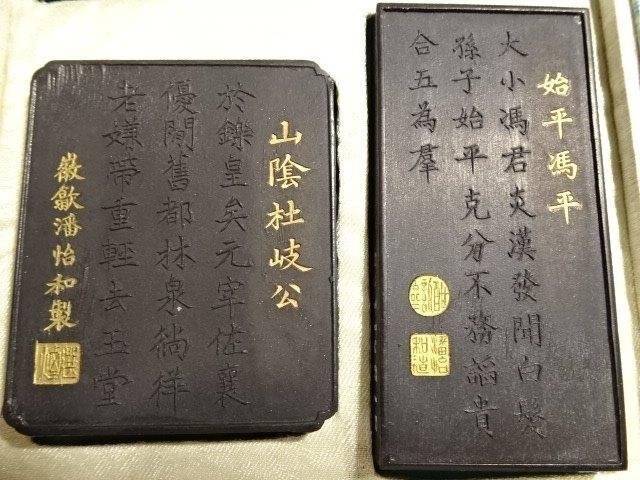 始平馮平
大小馮君炎漢發聞白髮
孫子始平克分不務謟貴
合五為羣
潘怡和造
山陰杜岐公
於鑠皇矣元宰佐襄
優閒舊都林泉徜徉
老嫌帶重輕去玉堂
徽歙潘怡和製